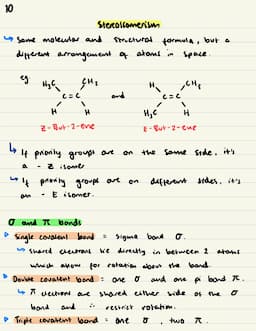 10
Stereoisomerism
↳ Same molecular and structural formula, but a
different arrangement of atoms in space.
eg.
H₃C CH₃ H CH₃
C = C and C = C
H H H₃C H
Z-But-2-ene E-But-2-ene
↳ If priority groups are on the same side, it's
a - Z isomer
↳ If priority groups are on different sides, it's
an - E isomer.
σ and π bonds
Single covalent bond = sigma bond σ.
↳ shared electrons lie directly in between 2 atoms
which allow for rotation about the bond.
Double covalent bond = one σ and one pi bond π.
↳ π electrons are shared either side of the σ
bond and ∴ restrict rotation.
Triple covalent bond = one σ, two π.